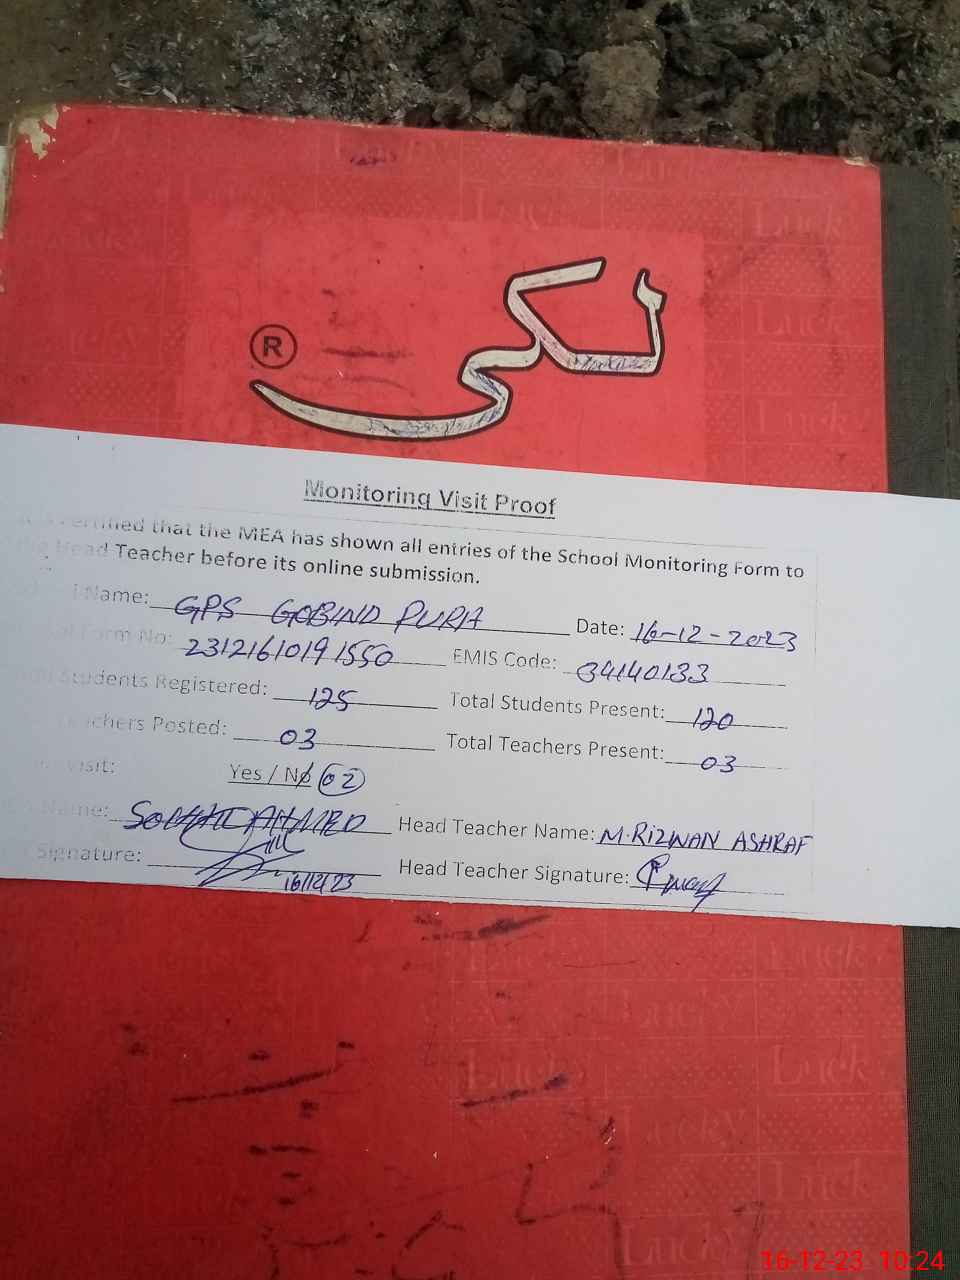 لکی
®
Monitoring Visit Proof
certified that the MEA has shown all entries of the School Monitoring Form to
Head Teacher before its online submission.
Name: GPS GOBIND PURA Date: 16-12-2023
Form No: 2312161019 1550 EMIS Code: 34140133
Students Registered: 125 Total Students Present: 120
Teachers Posted: 03 Total Teachers Present: 03
Visit: Yes / No 02
Name: AHMED Head Teacher Name: M. RIZWAN ASHRAF
Signature: 16/12/23 Head Teacher Signature:
Lucky
16-12-23 10:24